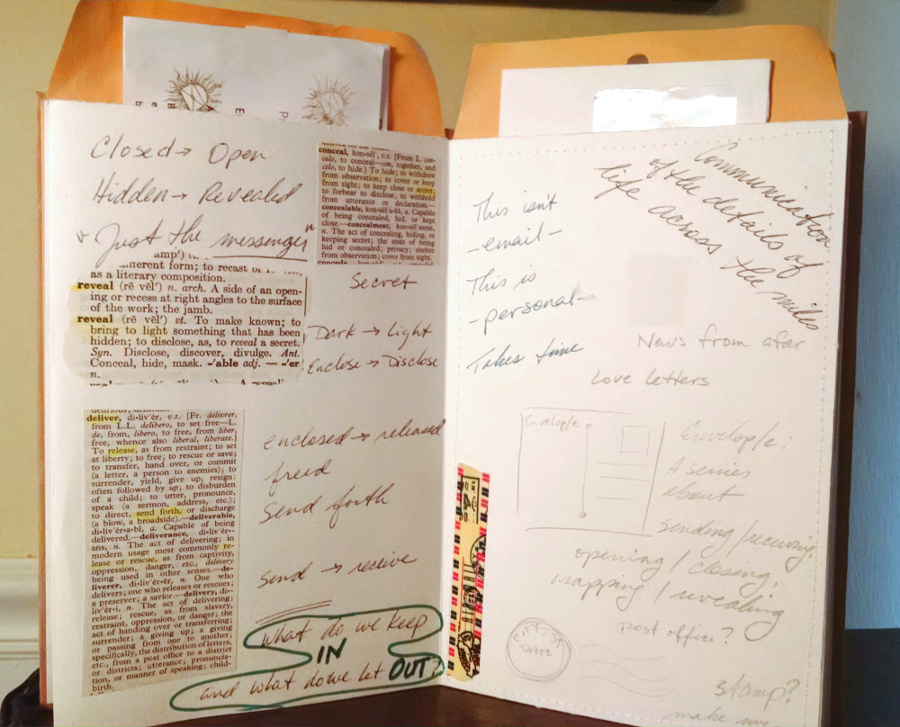 Closed → Open
Hidden → Revealed
"Just the messenger"
conceal, kon-sēl', v.t. [From L. con-
celo, to conceal—con, together, and
celo, to hide.] To hide; to withdraw
from observation; to cover or keep
from sight; to keep close or secret;
to forbear to disclose; to withhold
from utterance or declaration.—
concealable, kon-sēl'a-bl, a. Capable
of being concealed, hid, or kept
close.—concealment, kon-sēl'ment,
n. The act of concealing, hiding, or
keeping secret; the state of being
hid or concealed; privacy; shelter
from observation; cover from sight.
amp')
different form; to recast
as a literary composition.
reveal (rē vēl') n. arch. A side of an open-
ing or recess at right angles to the surface
of the work; the jamb.
reveal (rē vēl') vt. To make known; to
bring to light something that has been
hidden; to disclose, as, to reveal a secret.
Syn. Disclose, discover, divulge. Ant.
Conceal, hide, mask. -'able adj. — -'er
n.
Secret
Dark → Light
Enclose → Disclose
deliver, di-liv'ėr, v.t. [Fr. délivrer,
from L.L. delibero, to set free—L.
de, from, libero, to free, from liber,
free, whence also liberal, liberate.]
To release, as from restraint; to set
at liberty; to free; to rescue or save;
to transfer, hand over, or commit
(a letter, a person to enemies); to
surrender, yield, give up, resign:
often followed by up; to disburden
of a child; to utter, pronounce,
speak (a sermon, address, etc.);
to direct, send forth, or discharge
(a blow, a broadside).—deliverable,
di-liv'ėr-a-bl, a. Capable of being
delivered.—deliverance, di-liv'ėr-
ans, n. The act of delivering; in
modern usage most commonly re-
lease or rescue, as from captivity,
oppression, danger, etc., delivery
being used in other senses.—de-
liverer, di-liv'ėr-ėr, n. One who
delivers; one who releases or rescues;
a preserver; a savior.—delivery, di-
liv'ėr-i, n. The act of delivering;
release; rescue, as from slavery,
restraint, oppression, or danger; the
act of handing over or transferring;
surrender; a giving up; a giving
or passing from one to another;
specifically, the distribution of letters,
etc., from a post office to a district
or districts; utterance; pronuncia-
tion, or manner of speaking; child-
birth.
enclosed → released
freed
send forth
send → receive
What do we keep
IN
and what do we let OUT?
Communication
of the details of
life across the miles
This isn't
-email-
This is
-personal-
Takes time
News from afar
Love letters
Envelop/e
Envelop/e:
A series
about
sending/receiving,
opening/closing,
wrapping/revealing
post office?
stamp?
make my